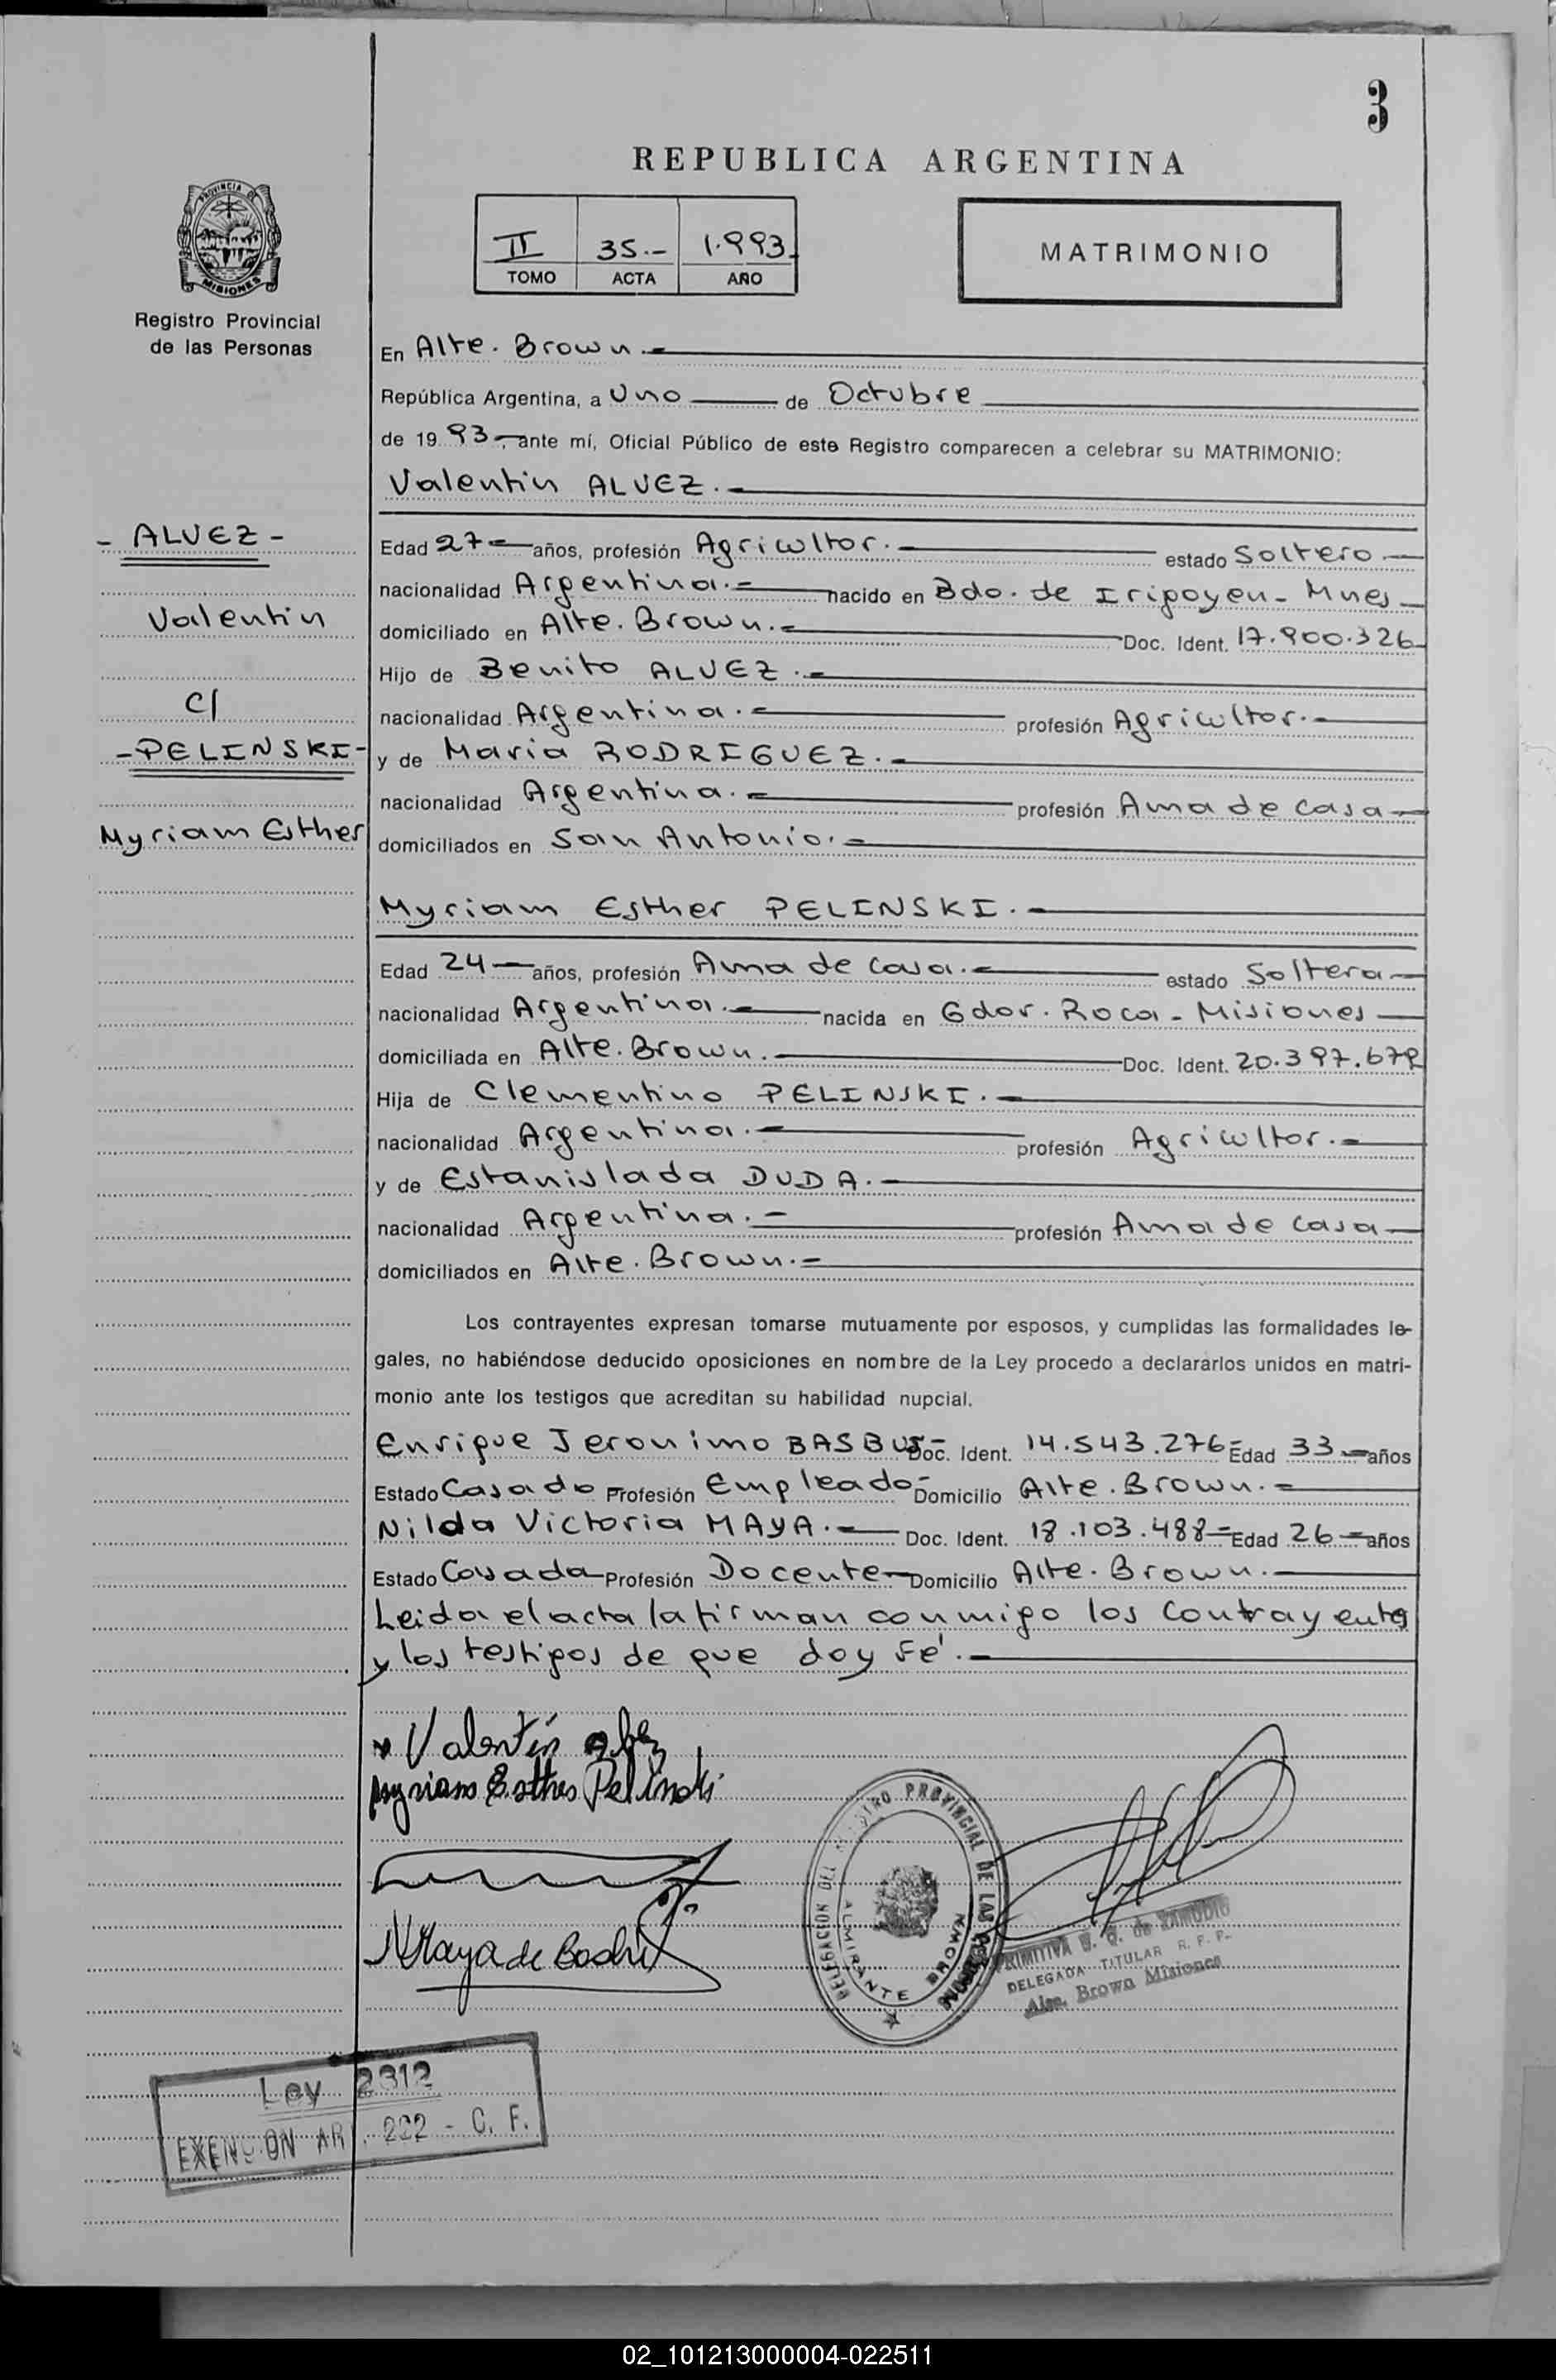 3
REPUBLICA ARGENTINA
PROVINCIA DE
MISIONES
II 35.- 1.993
TOMO ACTA AÑO
MATRIMONIO
Registro Provincial
de las Personas
En Alte. Brown.-
República Argentina, a Uno de Octubre
de 19 93 - ante mí, Oficial Público de este Registro comparecen a celebrar su MATRIMONIO:
Valentin ALVEZ.-
- ALVEZ -
Valentin
c/
- PELINSKI -
Myriam Esther
Edad 27 - años, profesión Agricultor.- estado Soltero -
nacionalidad Argentina.- nacido en Bdo. de Irigoyen - Mnes -
domiciliado en Alte. Brown.- Doc. Ident. 17.900.326
Hijo de Benito ALVEZ.-
nacionalidad Argentina.- profesión Agricultor.-
y de Maria RODRIGUEZ.-
nacionalidad Argentina.- profesión Ama de casa -
domiciliados en San Antonio.-
Myriam Esther PELINSKI.-
Edad 24 - años, profesión Ama de casa.- estado Soltera -
nacionalidad Argentina.- nacida en Gdor. Roca - Misiones -
domiciliada en Alte. Brown.- Doc. Ident. 20.397.679
Hija de Clementino PELINSKI.-
nacionalidad Argentina.- profesión Agricultor.-
y de Estanislada DUDA.-
nacionalidad Argentina.- profesión Ama de casa -
domiciliados en Alte. Brown.-
Los contrayentes expresan tomarse mutuamente por esposos, y cumplidas las formalidades le-
gales, no habiéndose deducido oposiciones en nombre de la Ley procedo a declararlos unidos en matri-
monio ante los testigos que acreditan su habilidad nupcial.
Enrique Jeronimo Doc. Ident. 14.543.276 - Edad 33 - años
Estado Casado - Profesión Empleado - Domicilio Alte. Brown.-
Nilda Victoria MAYA.- Doc. Ident. 18.103.488 - Edad 26 - años
Estado Casada - Profesión Docente - Domicilio Alte. Brown.-
Leida el acta la firman conmigo los contrayentes
y los testigos de que doy Fé.-
Valentín
Myriam Esther Pelinski
NMaya de
DELEGACION DEL REGISTRO PROVINCIAL DE LAS PERSONAS
ALMIRANTE BROWN
PRIMITIVA de ZAMUDIO
DELEGADA TITULAR R. P. P.
Alte. Brown Misiones
Ley 2312
EXENCION ART. 222 - C. F.
02_101213000004-022511